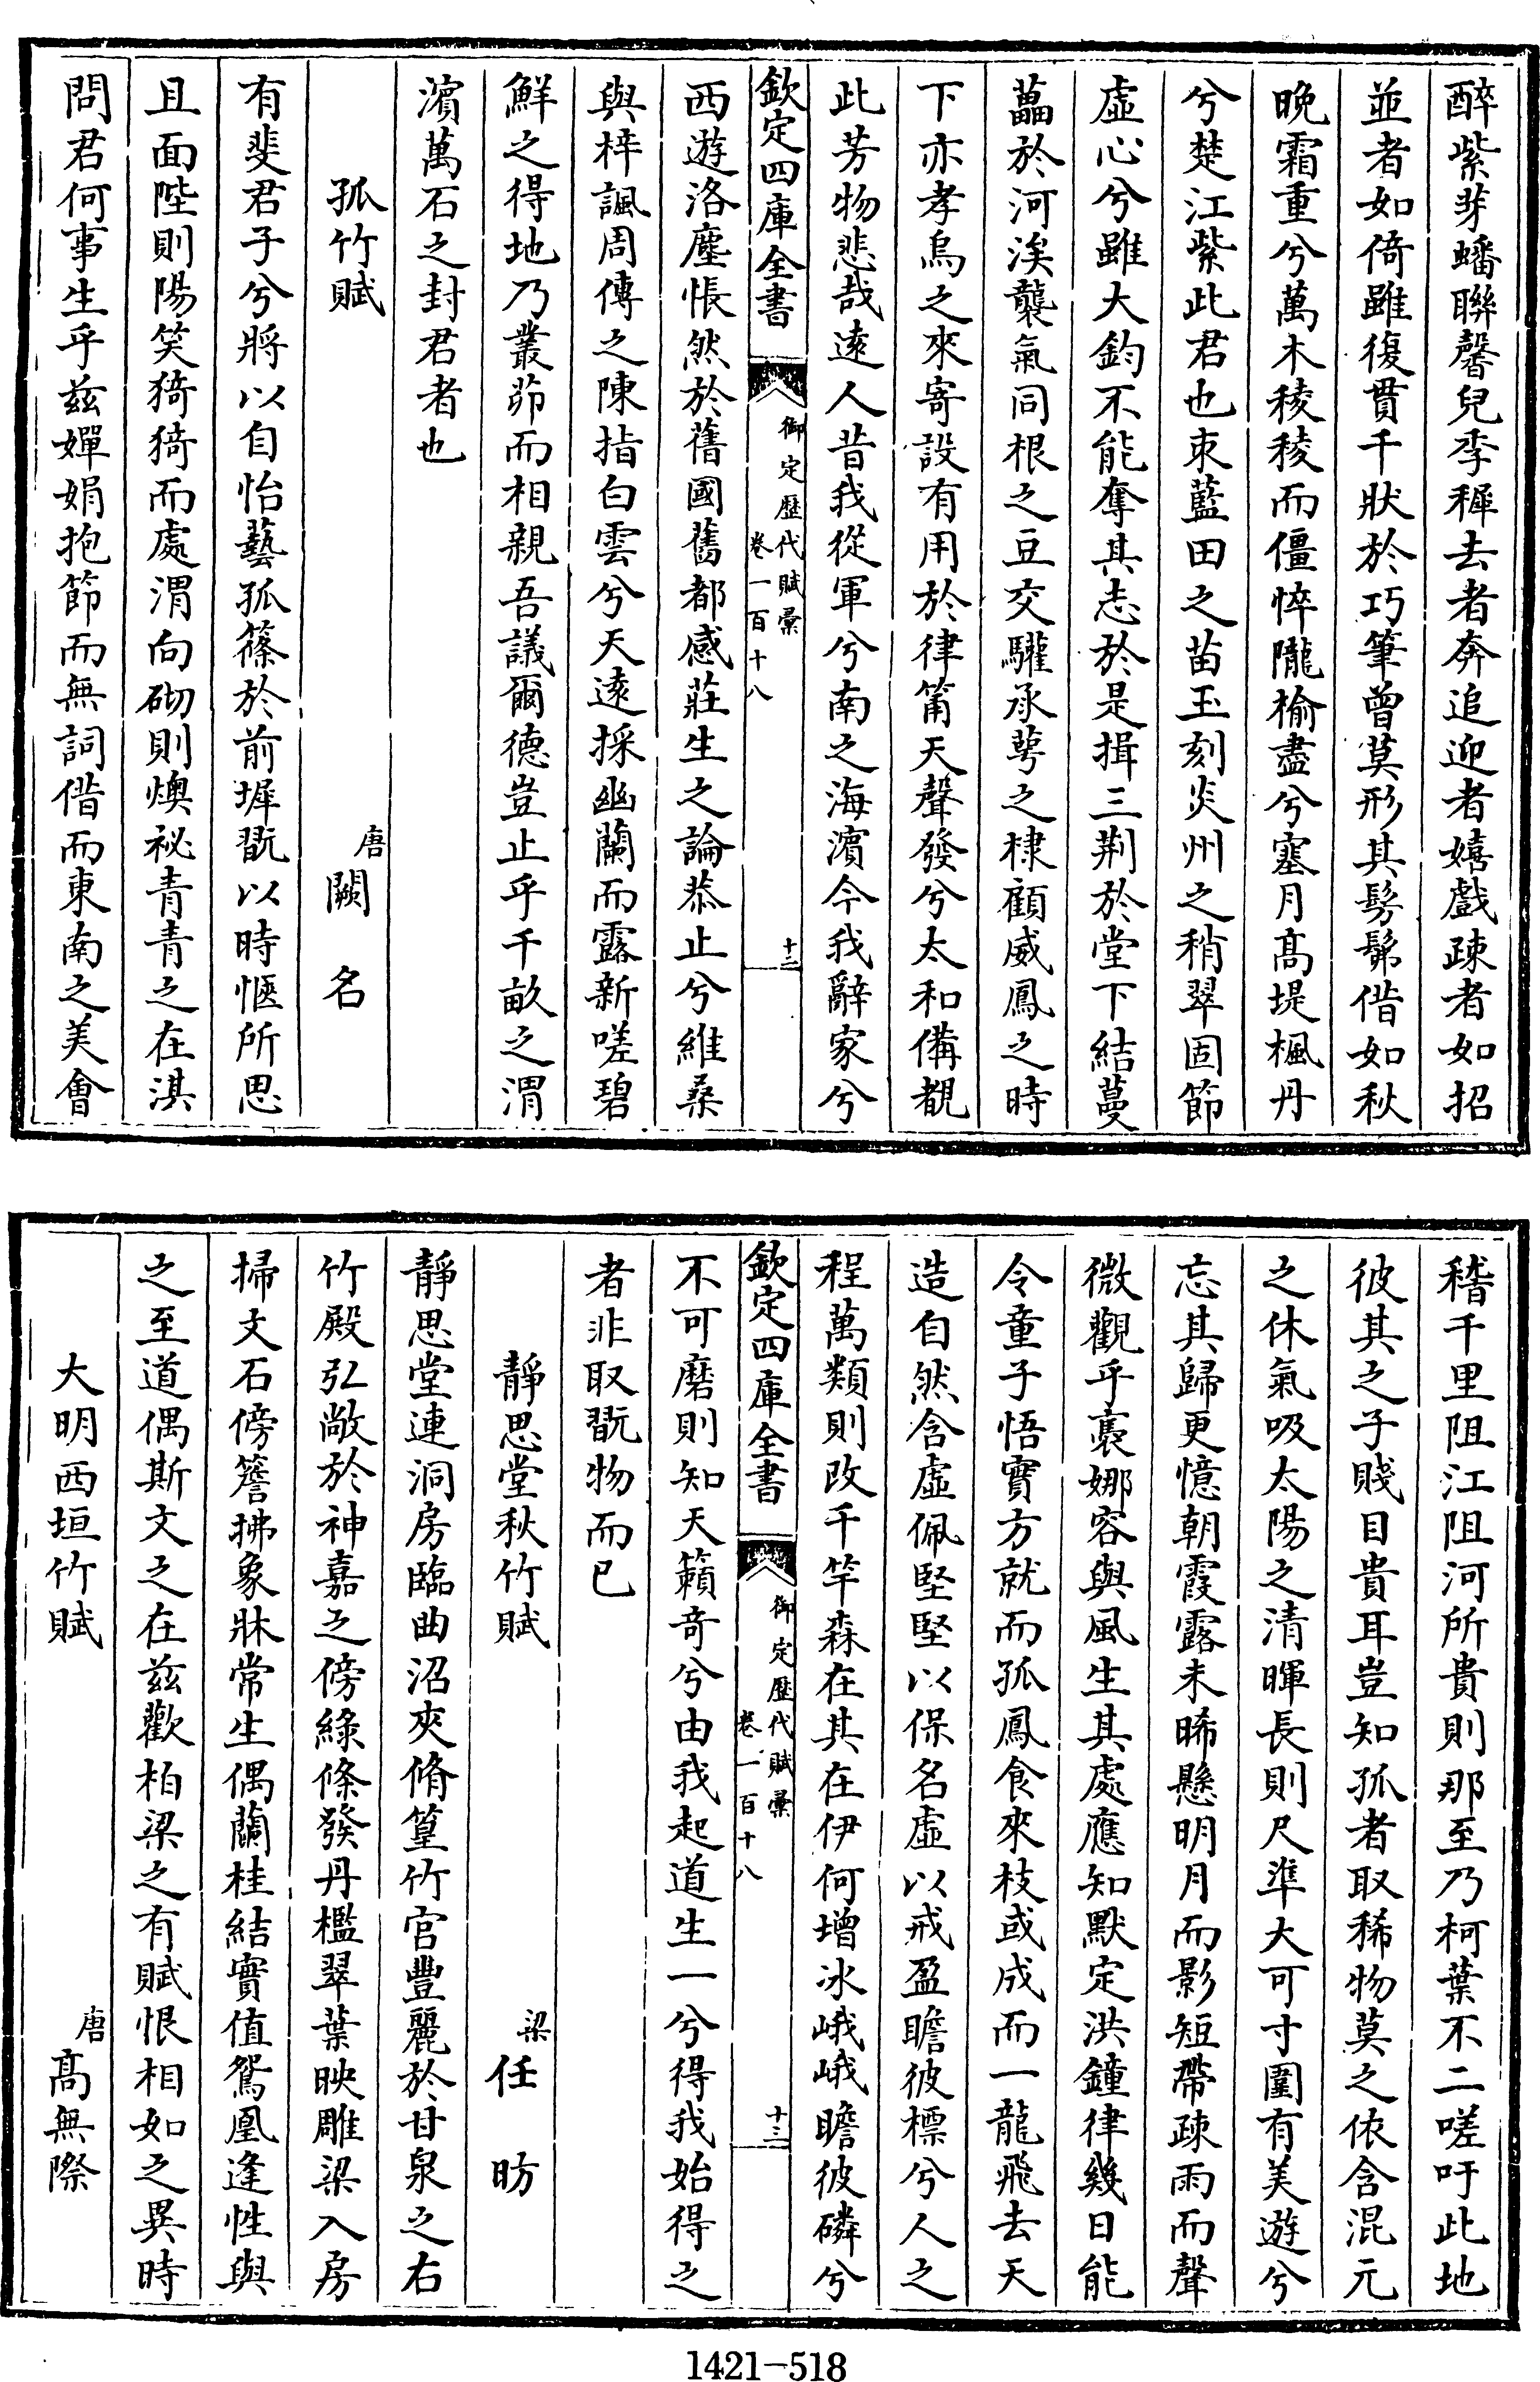 醉紫芽蟠聯馨兒季穉去者奔追迎者嬉戲疎者如招
並者如倚雖復貫千狀於巧筆曾莫形其髣髴偕如秋
晚霜重兮萬木稜稜而僵悴隴榆盡兮塞月高堤楓丹
兮楚江紫此君也束藍田之苗玉刻炎州之稍翠固節
虛心兮雖大鈞不能奪其志於是揖三荆於堂下結蔓
藟於河涘襲氣同根之豆交驩承萼之棣顧威鳳之時
下亦孝烏之來寄設有用於律筩天聲發兮太和備覩
此芳物悲哉遠人昔我從軍兮南之海濵今我辭家兮
欽定四庫全書
御定歷代賦彙
卷一百十八
十二
西遊洛塵悵然於舊國舊都感莊生之論恭止兮維桑
與梓諷周傳之陳指白雲兮天遠採幽蘭而露新嗟碧
鮮之得地乃叢茆而相親吾議爾德豈止乎千畝之渭
濵萬石之封君者也
孤竹賦
唐闕名
有斐君子兮將以自怡藝孤篠於前墀翫以時愜所思
且面陛則陽笑猗猗而處渭向砌則燠祕青青之在淇
問君何事生乎兹嬋娟抱節而無詞偕而東南之美會
稽千里阻江阻河所貴則那至乃柯葉不二嗟吁此地
彼其之子賤目貴耳豈知孤者取稀物莫之依含混元
之休氣吸太陽之清暉長則尺準大可寸圍有美遊兮
忘其歸更憶朝霞露未晞懸明月而影短帶疎雨而聲
微觀乎裊娜容與風生其處應知默定洪鐘律幾日能
令童子悟實方就而孤鳳食來枝或成而一龍飛去天
造自然含虛佩堅堅以保名虛以戒盈瞻彼標兮人之
程萬類則改千竿森在其在伊何增冰峨峨瞻彼磷兮
欽定四庫全書
御定歷代賦彙
卷一百十八
十三
不可磨則知天籟奇兮由我起道生一兮得我始得之
者非取翫物而已
靜思堂秋竹賦
梁任昉
靜思堂連洞房臨曲沼夾脩篁竹宫豐麗於甘泉之右
竹殿弘敞於神嘉之傍綠條發丹檻翠葉映雕梁入房
掃文石傍簷拂象牀常生偶蘭桂結實值鴛凰逢性與
之至道偶斯文之在兹歡柏梁之有賦恨相如之異時
大明西垣竹賦
唐高無際
1421-518